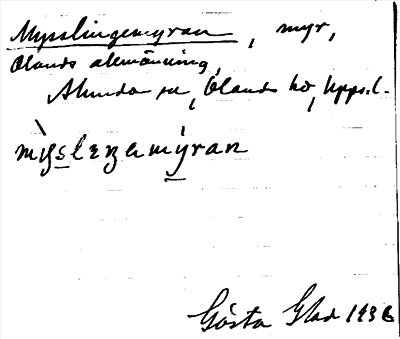 Mysslingemyran, myr,
Ölands allmänning,
Alunda sn, Ölands hd, Upps.l.
mỳsleŋemýran
Gösta Glad 1936